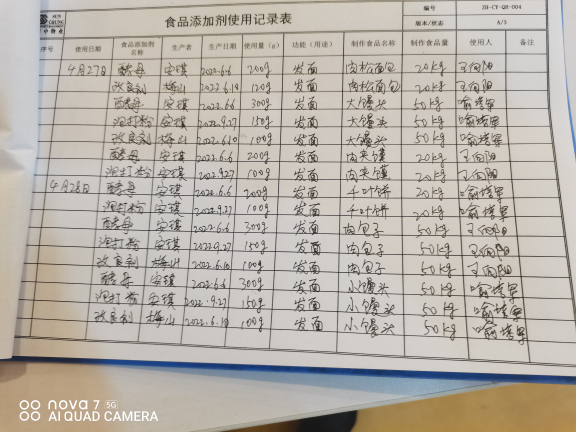 SUN CHUNG
中物业
食品添加剂使用记录表
编号 ZH-CY-QR-004
版本/状态 A/3
序号 使用日期 食品添加剂名称 生产者 生产日期 使用量（g） 功能（用途） 制作食品名称 制作食品量 使用人 备注
4月27日 酵母 安琪 2022.6.6 200g 发面 肉松面包 20kg 王向阳
改良剂 梅山 2022.6.19 120g 发面 肉松面包 20kg 王向阳
酵母 安琪 2022.6.6 300g 发面 大馒头 50kg
泡打粉 安琪 2022.9.27 150g 发面 大馒头 50kg
改良剂 梅山 2022.6.10 100g 发面 大馒头 50kg
酵母 安琪 2022.6.6 200g 发面 肉夹馍 20kg 王向阳
泡打粉 安琪 2022.9.27 100g 发面 肉夹馍 20kg 王向阳
4月28日 酵母 安琪 2022.6.6 200g 发面 千叶饼 20kg
泡打粉 安琪 2022.9.27 100g 发面 千叶饼 20kg
酵母 安琪 2022.6.6 300g 发面 肉包子 50kg 王向阳
泡打粉 安琪 2022.9.27 150g 发面 肉包子 50kg 王向阳
改良剂 梅山 2022.6.10 100g 发面 肉包子 50kg 王向阳
酵母 安琪 2022.6.6 300g 发面 小馒头 50kg
泡打粉 安琪 2022.9.27 150g 发面 小馒头 50kg
改良剂 梅山 2022.6.19 100g 发面 小馒头 50kg
nova 7 5G
AI QUAD CAMERA